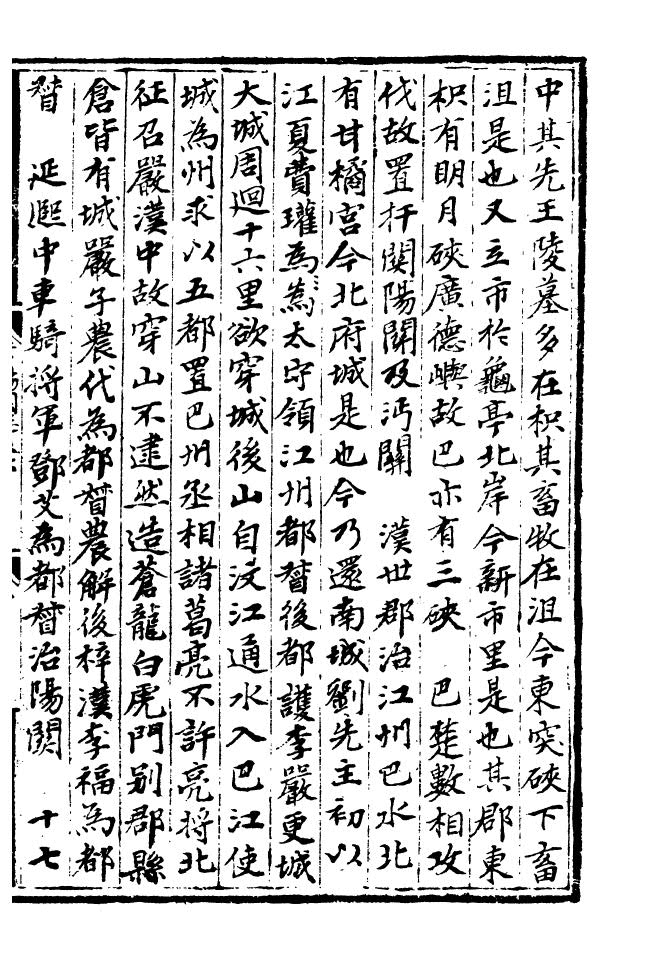 中其先王陵墓多在枳其畜牧在沮今東突硤下畜
沮是也又立市於龜亭北岸今新市里是也其郡東
枳有明月硤廣德嶼故巴亦有三硤　巴楚數相攻
伐故置扞關陽關及沔關　漢世郡治江州巴水北
有甘橘宮今北府城是也今乃還南城劉先主初以
江夏費瓘為太守領江州都督後都護李嚴更城
大城周迴十六里欲穿城後山自汶江通水入巴江使
城為州求以五都置巴州丞相諸葛亮不許亮將北
征召嚴漢中故穿山不逮然造蒼龍白虎門別郡縣
倉皆有城嚴子農代為都督農解後梓潼李福為都
督　延熙中車騎將軍鄧艾為都督治陽關　十七